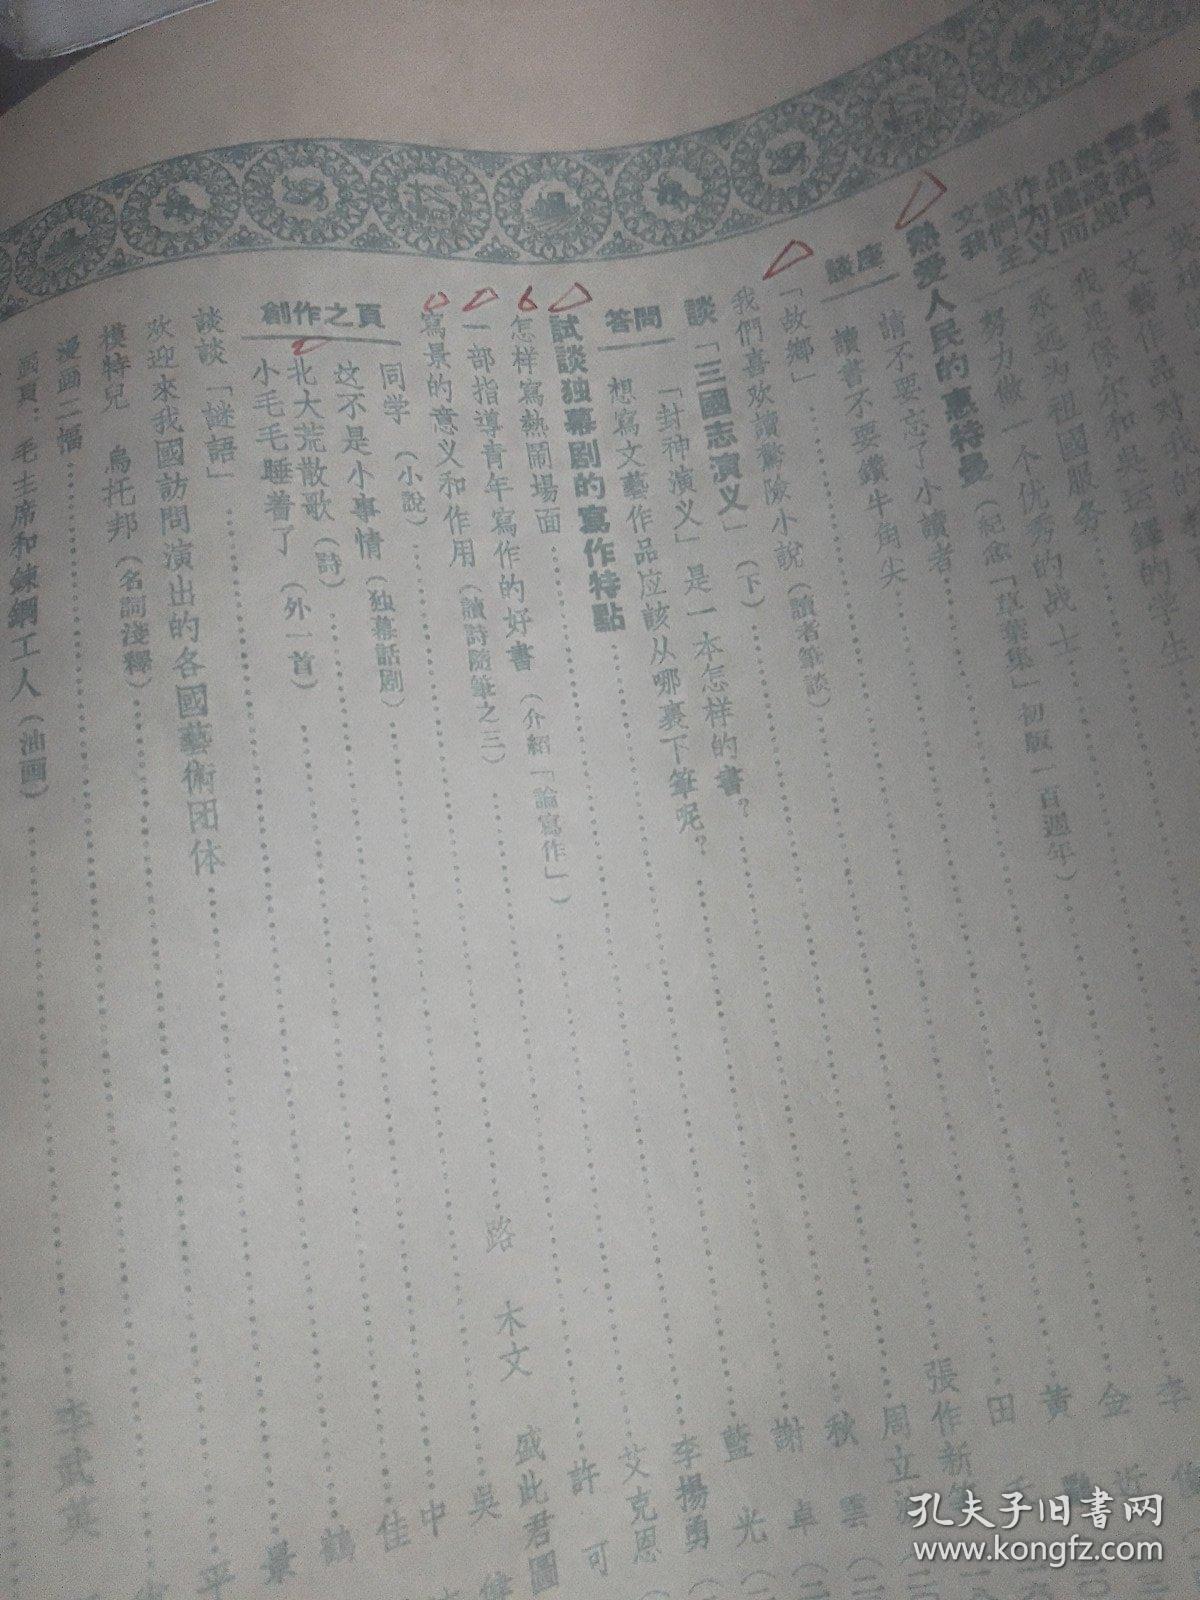 文藝作品鼓舞着
我們为建設社会
主义而战鬥
文藝作品对我的
我是保尔和吳运鐸的学生
永远为祖國服务
努力做一个优秀的战士
熱爱人民的惠特曼（紀念「草葉集」初版一百週年）
談座
請不要忘了小讀者
讀書不要鑽牛角尖
「故鄉」
我們喜欢讀驚險小說（讀者筆談）
談「三國志演义」（下）
「封神演义」是一本怎样的書？
答問
想寫文藝作品应該从哪裏下筆呢？
試談独幕劇的寫作特點
怎样寫熱鬧場面
一部指導青年寫作的好書（介紹「論寫作」）
寫景的意义和作用（讀詩隨筆之三）
創作之頁
同学（小說）
这不是小事情（独幕話剧）
北大荒散歌（詩）
小毛毛睡着了（外一首）
談談「謎語」
欢迎來我國訪問演出的各國藝術团体
模特兒 烏托邦（名詞淺釋）
漫画二幅
画頁：毛主席和煉鋼工人（油画）
李
金近
黃
田
張作新
周立
秋雲
謝卓
藍光
李揚勇
艾克恩
許可
路 木文 盛此君圖
吳
中
佳
鶴
景
平
李武英
孔夫子旧書网
www.kongfz.com